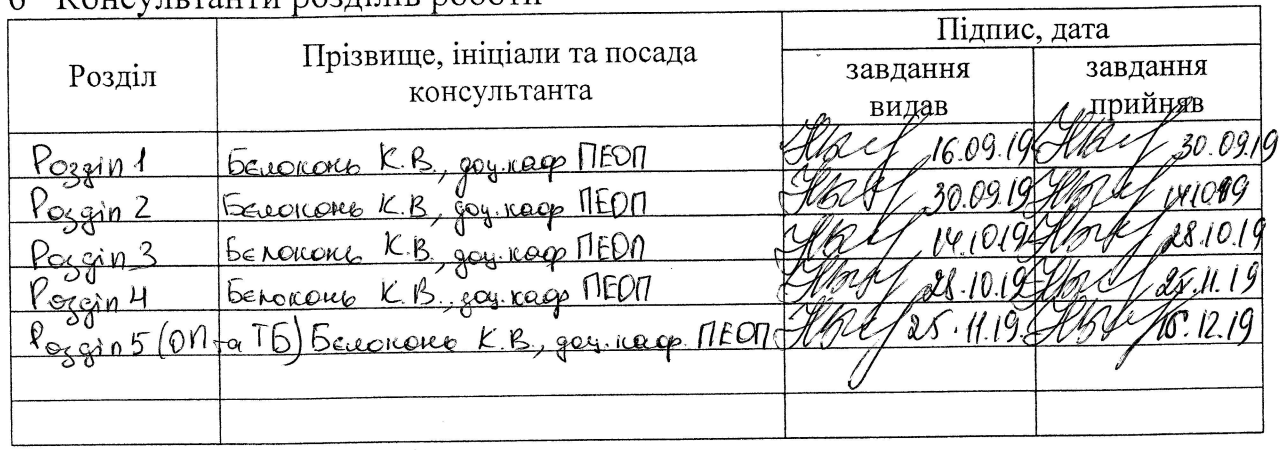 6 Консультанти розділів роботи
Розділ Прізвище, ініціали та посада консультанта Підпис, дата
завдання видав завдання прийняв
Розділ 1 Бєлоконь К.В., доц.каф ПЕОП 16.09.19 30.09.19
Розділ 2 Бєлоконь К.В., доц.каф ПЕОП 30.09.19 14.10.19
Розділ 3 Бєлоконь К.В., доц.каф ПЕОП 14.10.19 28.10.19
Розділ 4 Бєлоконь К.В., доц.каф ПЕОП 28.10.19 25.11.19
Розділ 5 (ОП та ТБ) Бєлоконь К.В., доц.каф. ПЕОП 25.11.19. 16.12.19